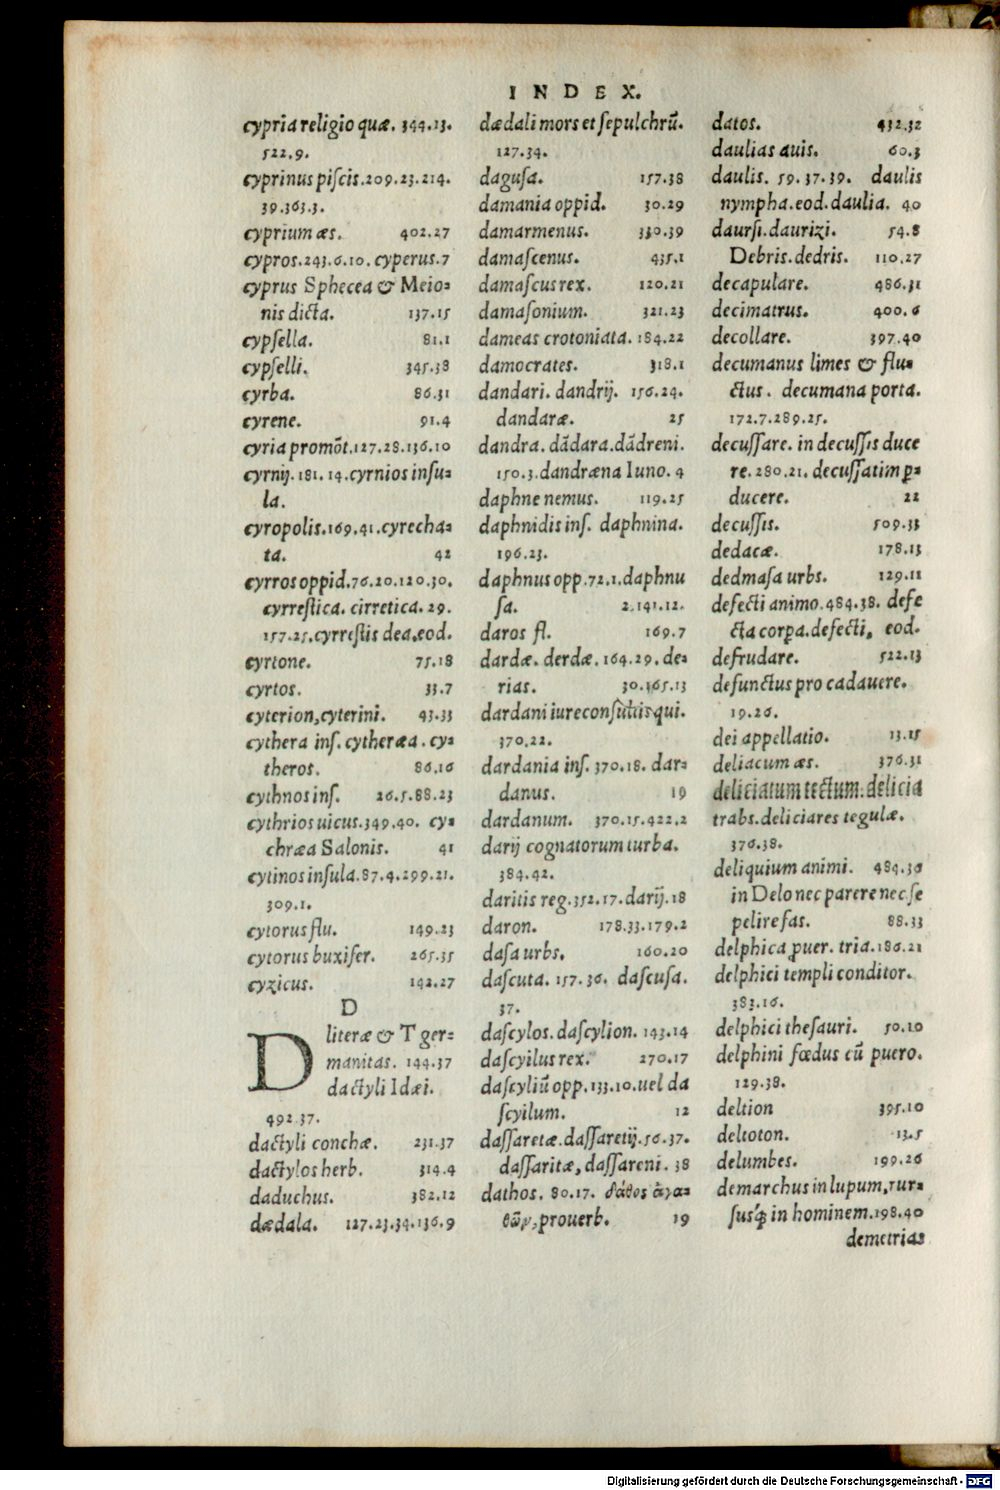 INDEX.
cypria religio quæ. 344.13.
522.9.
cyprinus piſcis.209.23.214.
39.363.3.
cyprium æs. 402.27
cypros.243.6.10. cyperus.7
cyprus Sphecea & Meio=
nis dicta. 137.15
cypſella. 81.1
cypſelli. 345.38
cyrba. 86.31
cyrene. 91.4
cyria promõt.127.28.136.10
cyrnij.181.14.cyrnios inſu=
la.
cyropolis.169.41.cyrecha=
ta. 42
cyrros oppid.76.20.120.30.
cyrreſtica. cirretica. 29.
157.25.cyrreſtis dea.eod.
cyrtone. 75.18
cyrtos. 33.7
cyterion,cyterini. 43.33
cythera inſ. cytheræa. cy=
theros. 86.16
cythnos inſ. 26.5.88.23
cythrios uicus.349.40. cy=
chræa Salonis. 41
cytinos inſula.87.4.299.21.
309.1.
cytorus flu. 149.23
cytorus buxifer. 265.35
cyzicus. 142.27
D
D literæ & T ger=
manitas. 144.37
dactyli Idæi.
492.37.
dactyli conchæ. 231.37
dactylos herb. 314.4
daduchus. 382.12
dædala. 127.23.34.136.9
dædali mors et ſepulchrũ.
127.34.
daguſa. 157.38
damania oppid. 30.29
damarmenus. 330.39
damaſcenus. 435.1
damaſcus rex. 120.21
damaſonium. 321.23
dameas crotoniata. 184.22
damocrates. 318.1
dandari. dandrij. 156.24.
dandaræ. 25
dandra. dãdara.dãdreni.
150.3.dandræna Iuno. 4
daphne nemus. 119.25
daphnidis inſ. daphnina.
196.23.
daphnus opp.72.1.daphnu
ſa. 2.141.12.
daros fl. 169.7
dardæ. derdæ. 164.29. de=
rias. 30.365.13
dardani iureconſultis qui.
370.22.
dardania inſ. 370.18. dar=
danus. 19
dardanum. 370.15.422.2
darij cognatorum turba.
384.42.
daritis reg.352.17.darij.18
daron. 178.33.179.2
daſa urbs. 160.20
daſcuta. 157.36. daſcuſa.
37.
daſcylos. daſcylion. 143.14
daſcyilus rex. 270.17
daſcyliũ opp.133.10.uel da
ſcyilum. 12
daſſaretæ.daſſaretij.56.37.
daſſaritæ, daſſareni. 38
dathos. 80.17. δάθος ἀγα=
θῶν,prouerb. 19
datos. 432.32
daulias auis. 60.3
daulis. 59.37.39. daulis
nympha.eod.daulia. 40
daurſi.daurizi. 54.8
Debris.dedris. 110.27
decapulare. 486.31
decimatrus. 400.6
decollare. 397.40
decumanus limes & flu=
ctus. decumana porta.
172.7.289.25.
decuſſare. in decuſſis duce
re. 280.21. decuſſatim ꝑ=
ducere. 22
decuſſis. 509.33
dedacæ. 178.13
dedmaſa urbs. 129.11
defecti animo.484.38. defe
cta corꝑa.defecti, eod.
defrudare. 522.13
defunctus pro cadauere.
19.26.
dei appellatio. 13.15
deliacum æs. 376.31
deliciatum tectum.delicia
trabs.deliciares tegulæ.
376.38.
deliquium animi. 484.36
in Delo nec parere nec ſe
pelire fas. 88.33
delphica puer. tria.186.21
delphici templi conditor.
383.16.
delphici theſauri. 50.10
delphini fœdus cũ puero.
129.38.
deltion 395.10
deltoton. 13.5
delumbes. 199.26
demarchus in lupum,rur=
ſusq́; in hominem.198.40
demetrias
Digitalisierung gefördert durch die Deutsche Forschungsgemeinschaft - DFG